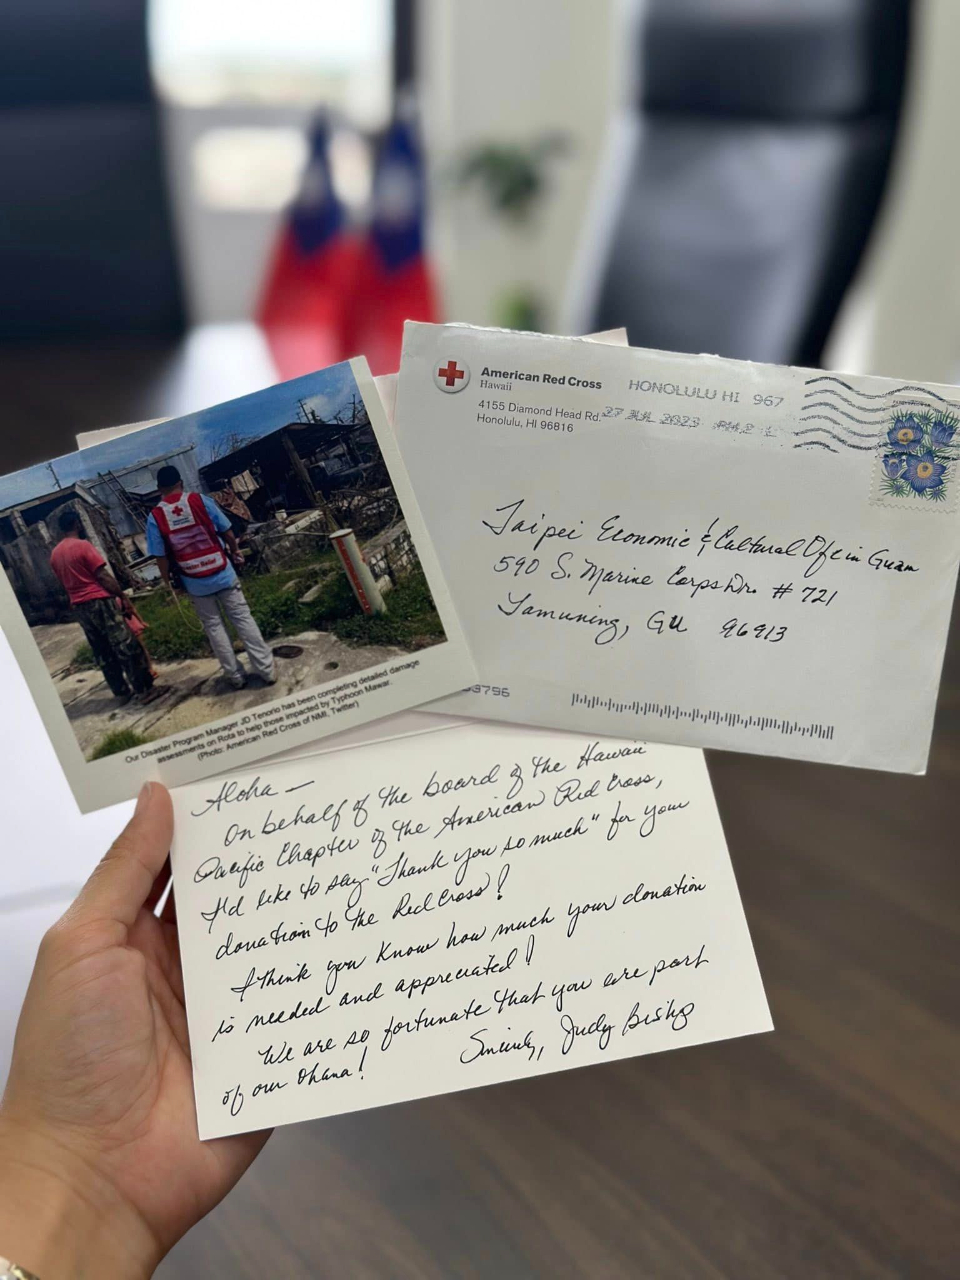 American Red Cross
Hawaii
4155 Diamond Head Rd.
Honolulu, HI 96816
HONOLULU HI 967
27 JUL 2023 PM 2 L
Taipei Economic & Cultural Ofc in Guam
590 S. Marine Corps Dr. # 721
Tamuning, GU 96913
3796
Our Disaster Program Manager JD Tenorio has been completing detailed damage
assessments on Rota to help those impacted by Typhoon Mawar.
(Photo: American Red Cross of NMI, Twitter)
Aloha —
On behalf of the board of the Hawaii
Pacific Chapter of the American Red Cross,
I'd like to say "Thank you so much" for your
donation to the Red Cross!
I think you know how much your donation
is needed and appreciated!
We are so fortunate that you are part
of our Ohana!
Sincerely, Judy Bishop